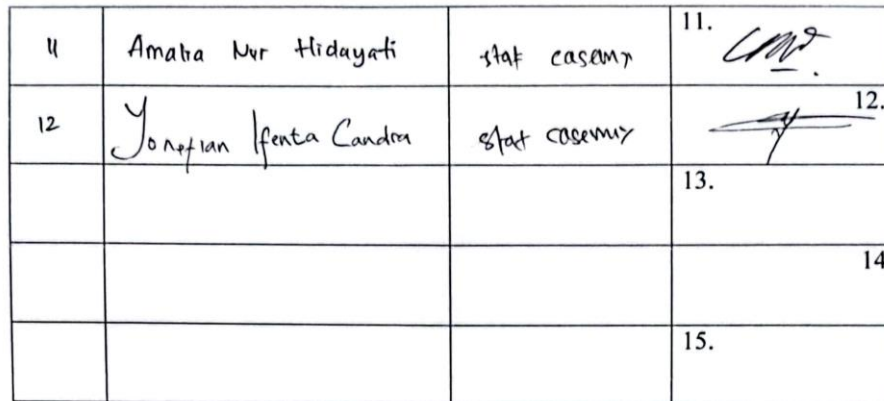 11 Amalia Nur Hidayati staf casemix 11.
12 Yonefian Ifenta Candra staf casemix 12.
13.
14
15.